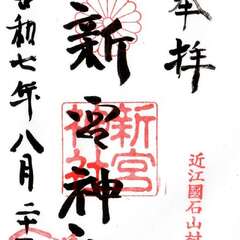 奉拝
近江國石山
新宮神社
新宮神社
令和七年八月二十